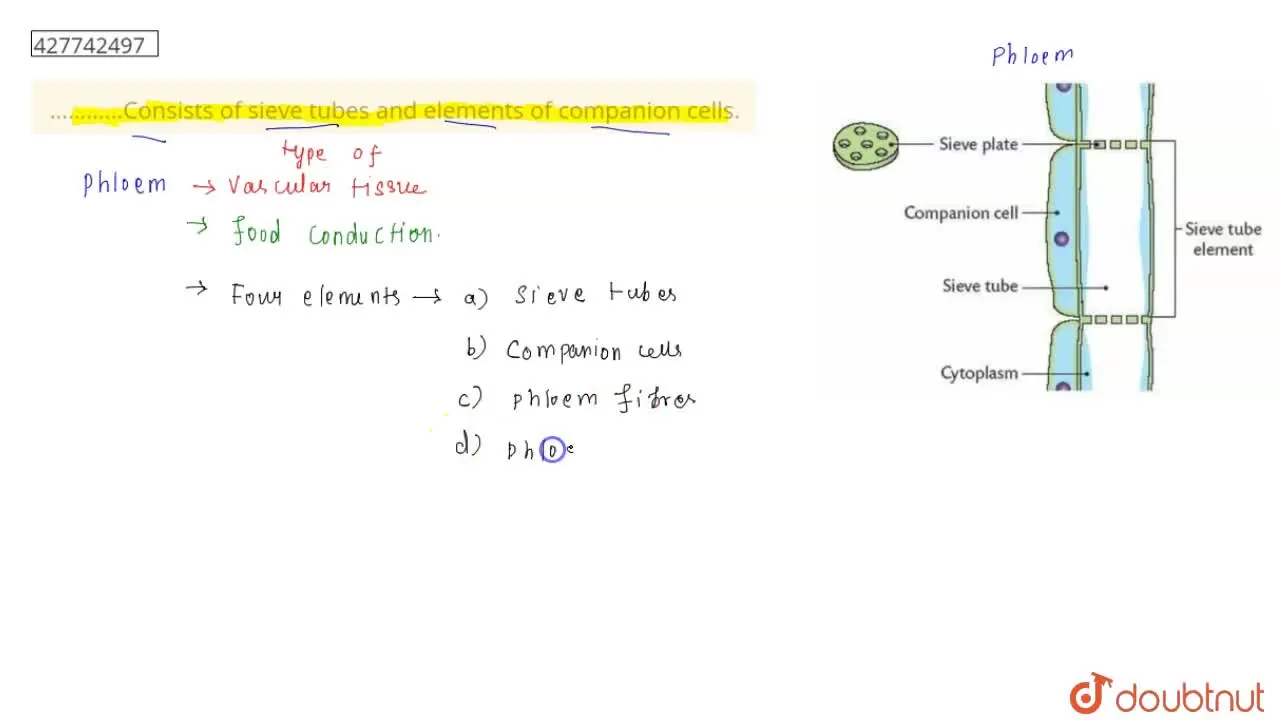 427742497
............Consists of sieve tubes and elements of companion cells.
type of
Phloem → Vascular tissue
→ food conduction.
→ Four elements → a) Sieve tubes
b) Companion cells
c) Phloem fibres
d) Phloe
Phloem
Sieve plate
Companion cell
Sieve tube element
Sieve tube
Cytoplasm
doubtnut